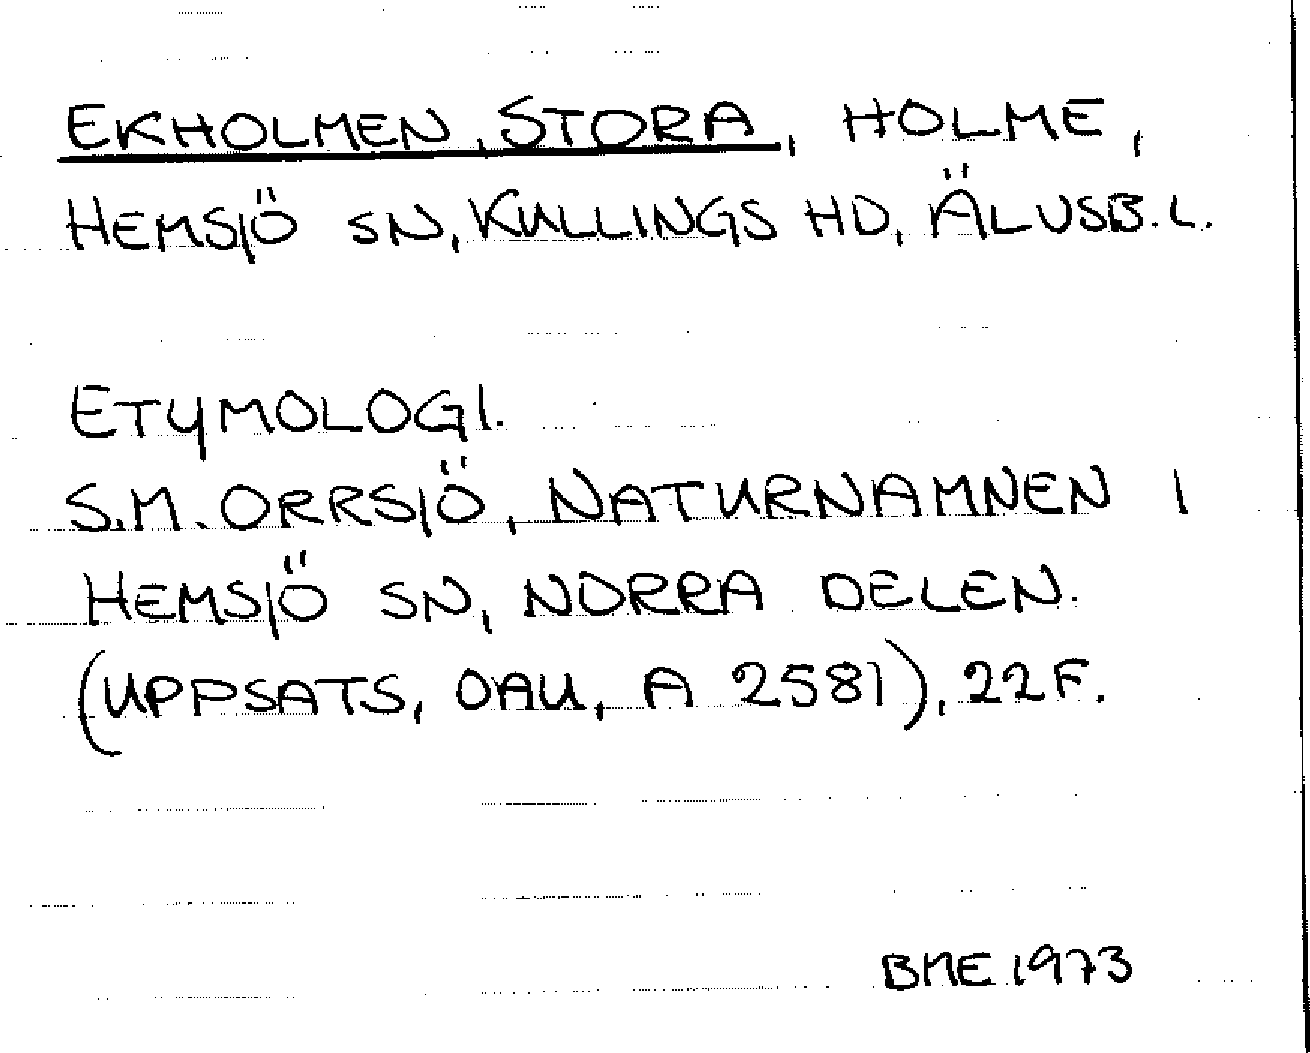 EKHOLMEN, STORA, HOLME,
HEMSJÖ SN, KULLINGS HD, ÄLVSB.L.
ETYMOLOGI.
S.M. ORRSJÖ, NATURNAMNEN I
HEMSJÖ SN, NORRA DELEN.
(UPPSATS, OAU, A 2581), 22 F.
BME 1973